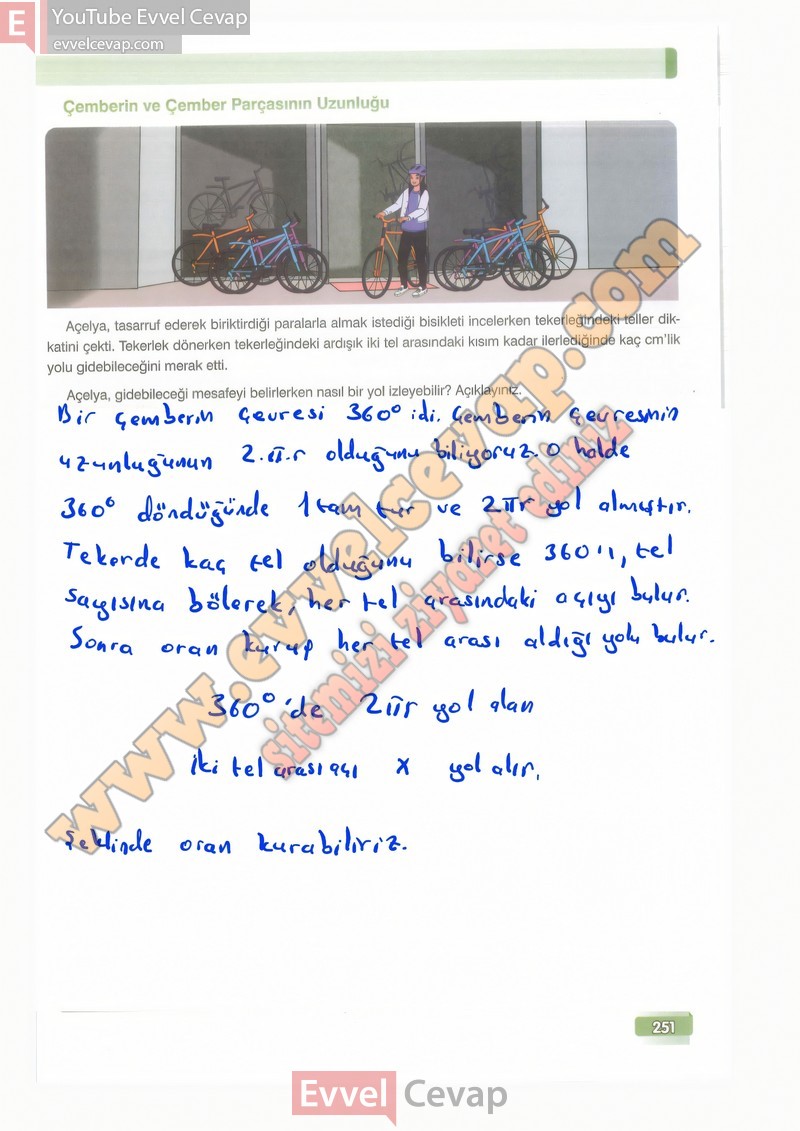 E
YouTube Evvel Cevap
evvelcevap.com
Çemberin ve Çember Parçasının Uzunluğu
Açelya, tasarruf ederek biriktirdiği paralarla almak istediği bisikleti incelerken tekerleğindeki teller dik-
katini çekti. Tekerlek dönerken tekerleğindeki ardışık iki tel arasındaki kısım kadar ilerlediğinde kaç cm'lik
yolu gidebileceğini merak etti.
Açelya, gidebileceği mesafeyi belirlerken nasıl bir yol izleyebilir? Açıklayınız.
Bir çemberin çevresi 360° idi. Çemberin çevresinin
uzunluğunun 2.π.r olduğunu biliyoruz. O halde
360° döndüğünde 1 tam tur ve 2πr yol almıştır.
Tekerde kaç tel olduğunu bilirse 360'ı, tel
sayısına bölerek, her tel arasındaki açıyı bulur.
Sonra oran kurup her tel arası aldığı yolu bulur.
360°'de 2πr yol alan
iki tel arası açı x yol alır.
Şeklinde oran kurabiliriz.
www.evvelcevap.com
sitemizi ziyaret ediniz
251
Evvel Cevap